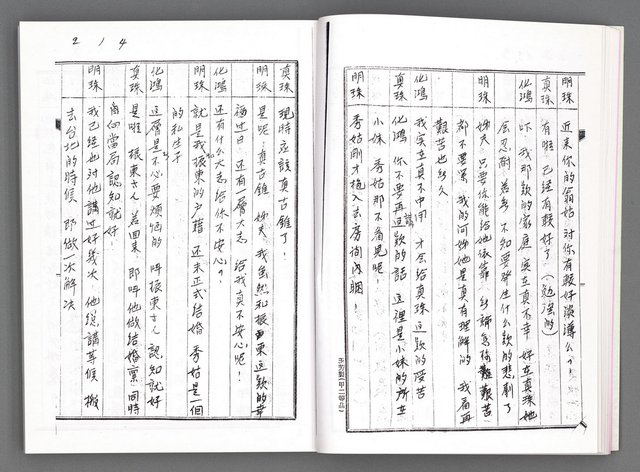 明珠 近来你的翁姑 对你有較好淡薄么？！
真珠 有啦 已経有較好了（勉強的）
化鴻 咏 我那款的家庭 实在真不幸 好在真珠她
会忍耐 若無 不知要發生什么款的悲劇了
明珠 姊夫 只要你能給她依靠 任講怎樣艱苦
都不要緊 我的阿姊她是真有理解的 我看再
艱苦也無久
化鴻 我实在真不中用 才会給真珠这款的受苦
真珠 化鴻 你不要再講这款的話 這裡是小妹的所在
小妹 秀姑那不看見呢！
明珠 秀姑剛才抱入去房间内睏！
真珠 現時应該真古錐了！
明珠 是呢！真古錐 姊夫 我虽然和振東这款的幸
福过日 还有一層大志 給我真不安心呢！
化鴻 还有什么大志給你不安心？
明珠 就是我振東的户藉 还未正式结婚 秀姑是一個
的私生子
化鴻 这層是不必要煩惱的 呌振東さん 認知就好
真珠 是啦 振東さん 若回来 即呌他做结婚禀 同時
向当局認知就好
明珠 我已経也对他講过好幾次 他総講等候 搬
去台北的時候 即做一次解決
214
玉芳製（甲二等品）